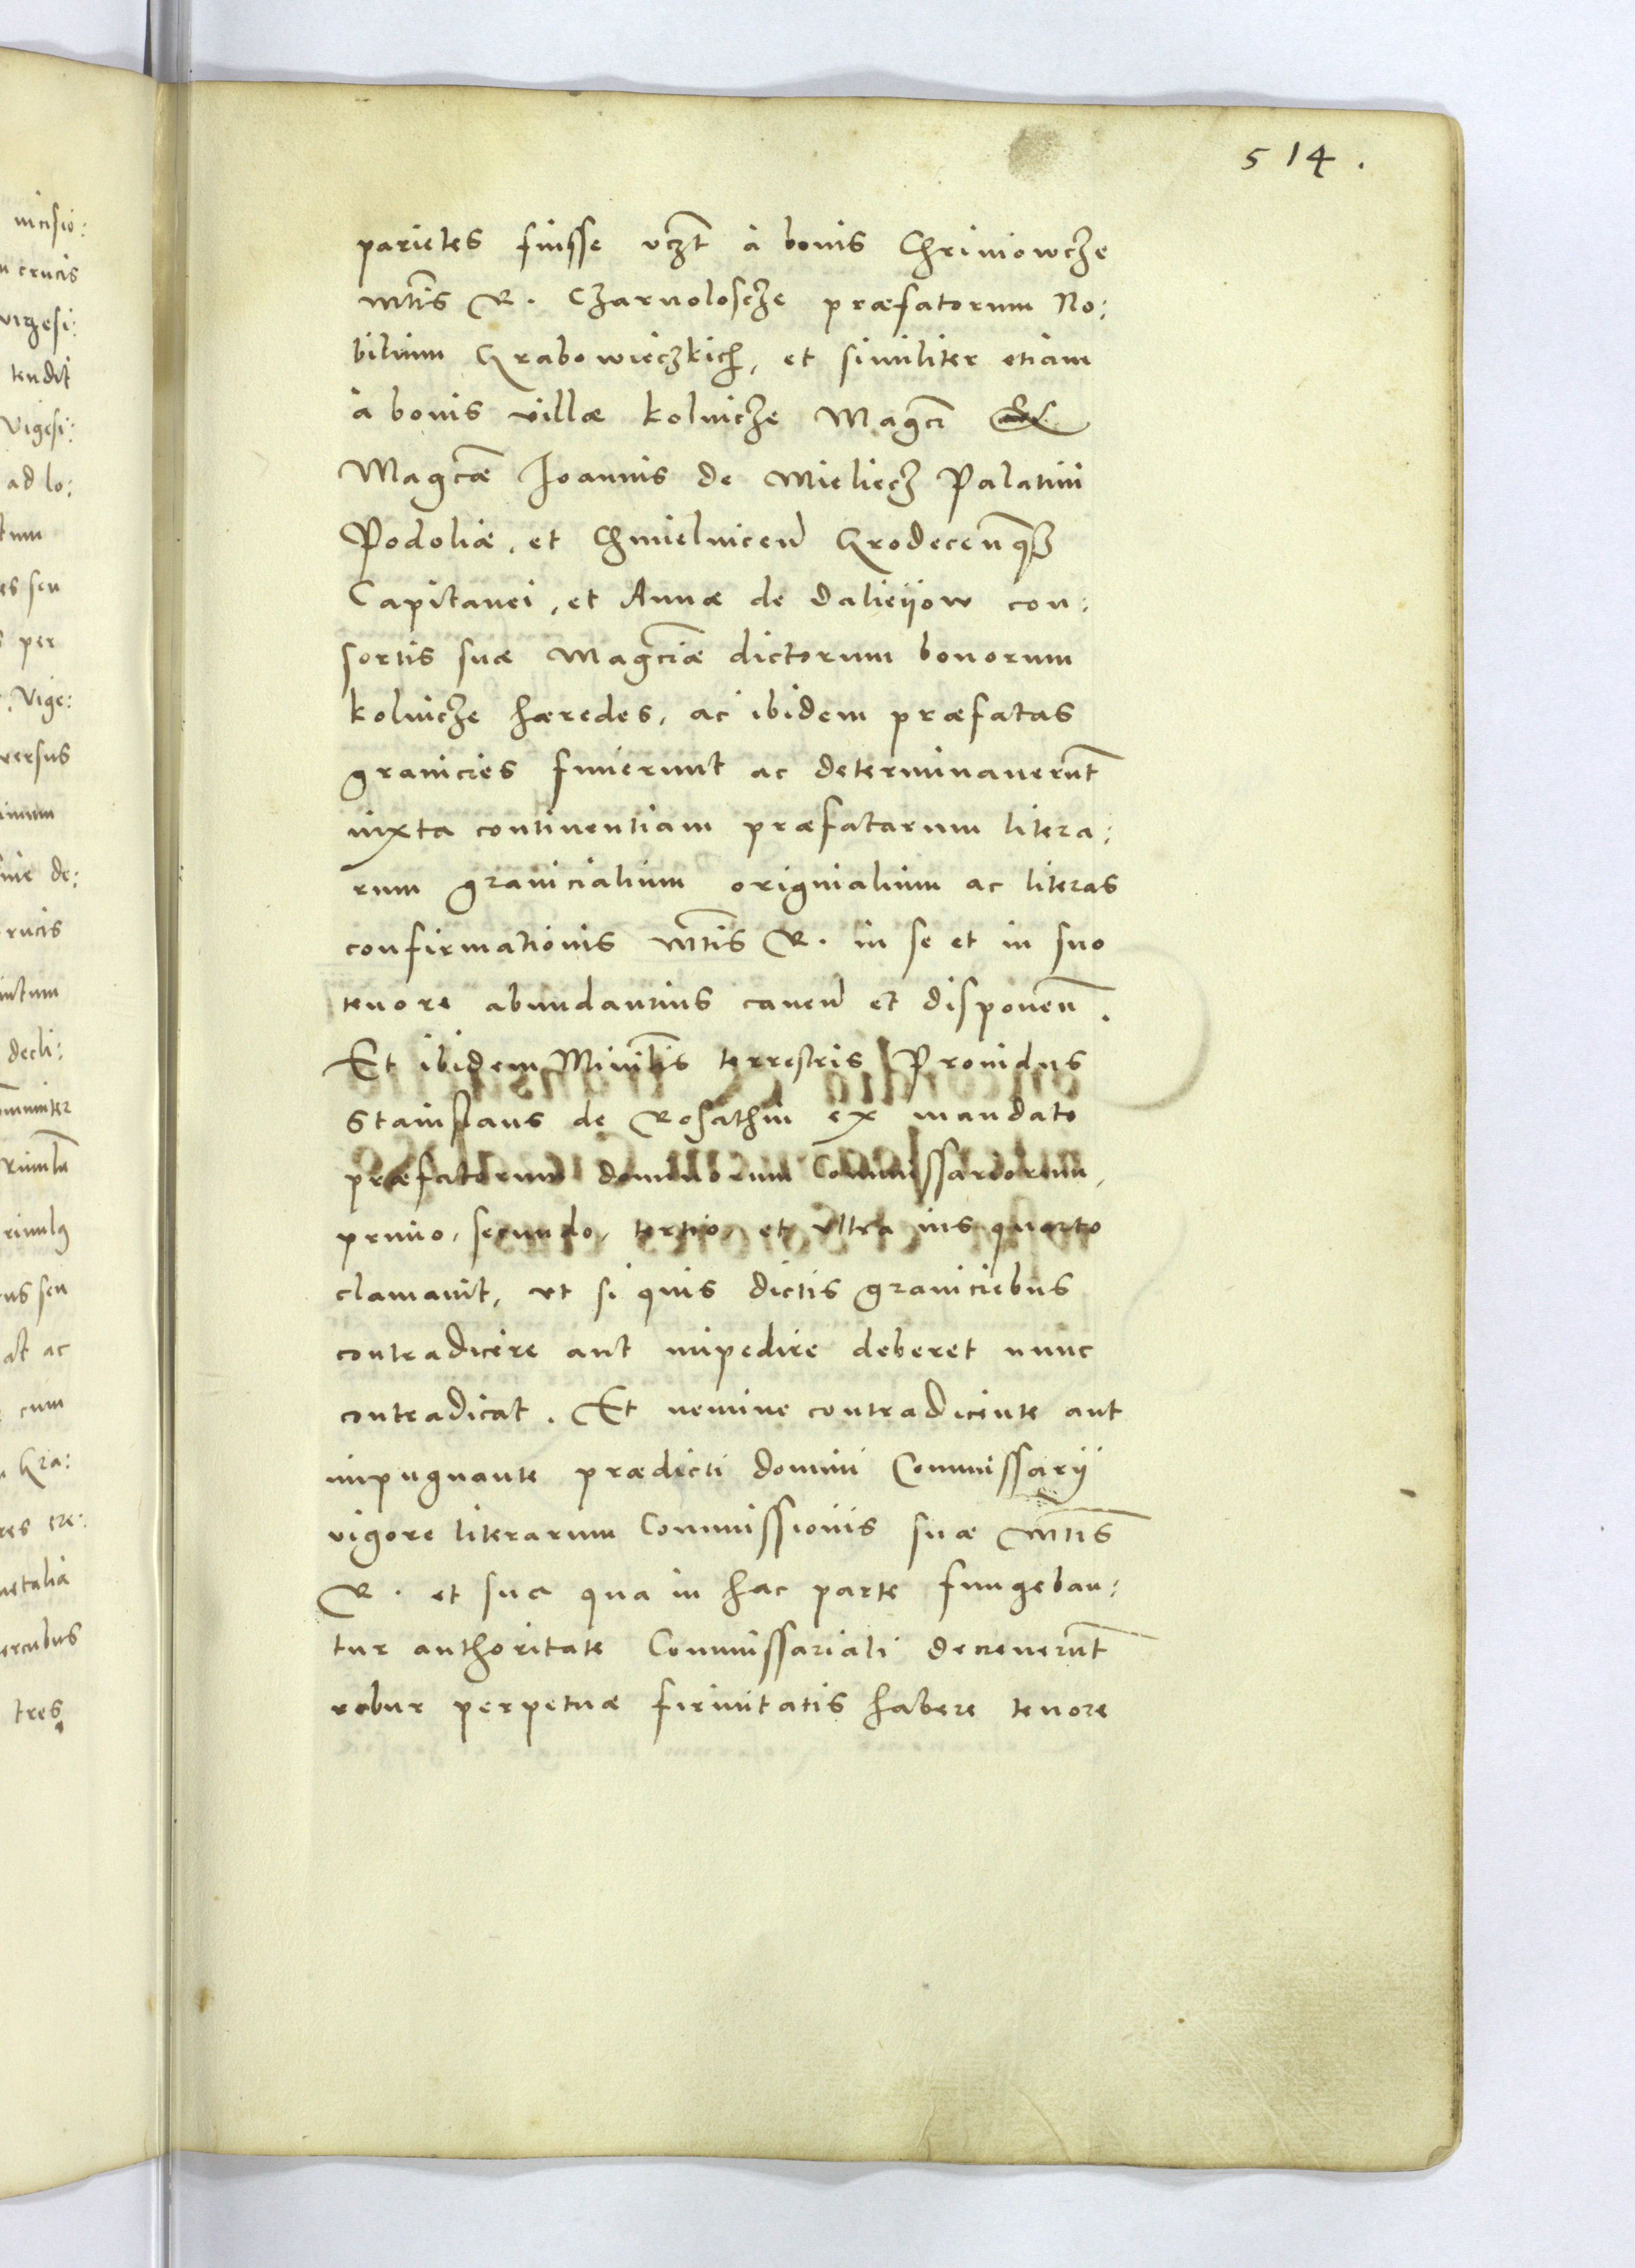 514.
parietes fuisse vczt à bonis Chriniowcze
Mtis R. Czarnoloscze præfatorum No:
bilium Grabowieczkich, et similiter etiam
à bonis villæ Kolnicze Magci
Magcæ Joannis de Mieliecz Palatini
Podoliæ, et Chmielnicen Grodecenqȝ
Capitanei, et Annæ de Dalieijow con:
sortis suæ Magciæ dictorum bonorum
Kolnicze hæredes, ac ibidem præfatas
granicies finierunt ac determinauerunt
iuxta continentiam præfatarum litera:
rum granicialium originalium ac literas
confirmationis Mtis R. in se et in suo
tenore abundantius canen et disponen.
Et ibidem Ministris terrestris Prouidus
Stanislaus de Rosathin ex mandato
præfatorum dominorum Commissariorum,
primo, secundo, tertio, et vltra ius quarto
clamauit, vt si quis dictis graniciebus
contradicere aut impedire deberet nunc
contradicat. Et nemine contradicente aut
impugnante prædicti domini Commissarij
vigore literarum Commissionis suæ Mtis
R. et sua qua in hac parte fungeban:
tur authoritate Commissariali decreuerunt
robur perpetuæ firmitatis habere tenore